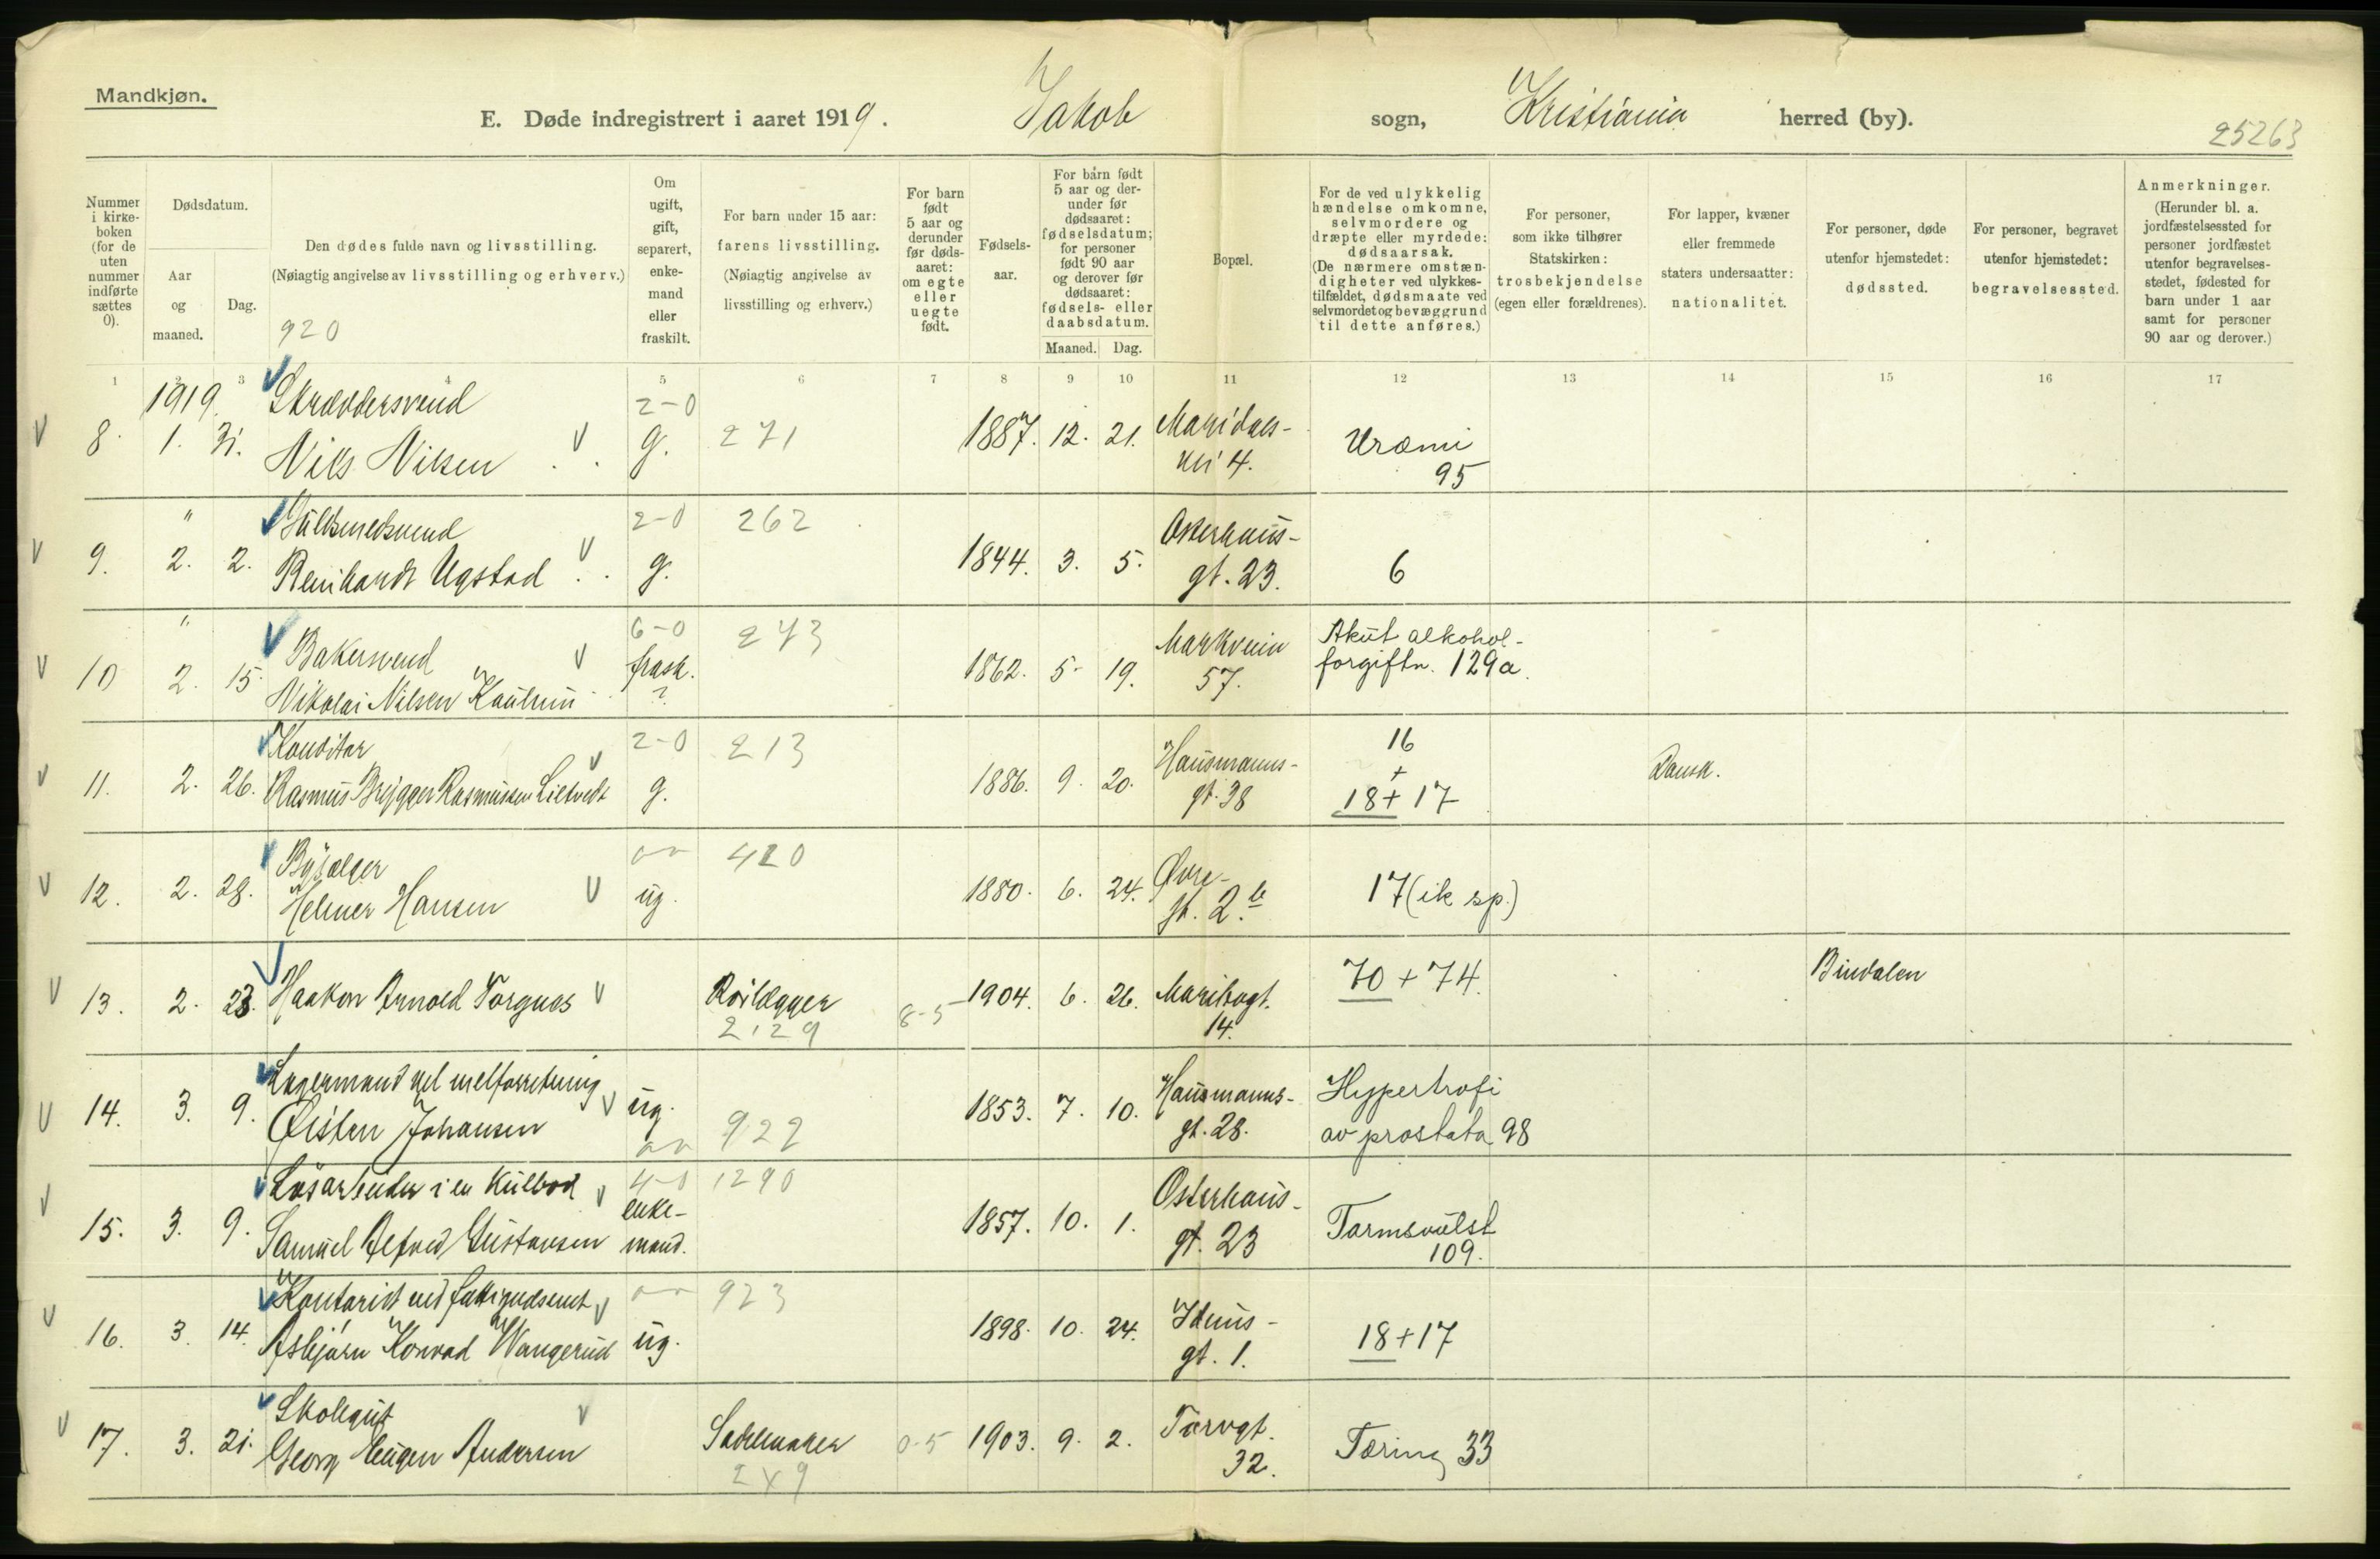 Mandkjøn.
E. Døde indregistrert i aaret 1919. Jakob sogn, Kristiania herred (by).
25263
Nummer i kirkeboken (for de uten nummer indførte sættes 0).
Dødsdatum.
Aar og maaned.
Dag.
Den dødes fulde navn og livsstilling.
(Nøiagtig angivelse av livsstilling og erhverv.)
920
Om ugift, gift, separert, enkemand eller fraskilt.
For barn under 15 aar: farens livsstilling.
(Nøiagtig angivelse av livsstilling og erhverv.)
For barn født 5 aar og derunder før dødsaaret: om egte eller uegte født.
Fødselsaar.
For barn født 5 aar og derunder før dødsaaret: fødselsdatum; for personer født 90 aar og derover før dødsaaret: fødsels- eller daabsdatum.
Maaned. Dag.
Bopæl.
For de ved ulykkelig hændelse omkomne, selvmordere og dræpte eller myrdede: dødsaarsak.
(De nærmere omstændigheter ved ulykkestilfældet, dødsmaate ved selvmordet og bevæggrund til dette anføres.)
For personer, som ikke tilhører Statskirken: trosbekjendelse (egen eller forældrenes).
For lapper, kvæner eller fremmede staters undersaatter: nationalitet.
For personer, døde utenfor hjemstedet: dødssted.
For personer, begravet utenfor hjemstedet: begravelsessted.
Anmerkninger.
(Herunder bl. a. jordfæstelsessted for personer jordfæstet utenfor begravelsesstedet, fødested for barn under 1 aar samt for personer 90 aar og derover.)
1 2 3 4 5 6 7 8 9 10 11 12 13 14 15 16 17
1919. Skræddersvend 2-0
8. 1. 31. Nils Nilsen g. 271 1887. 12. 21. Maridalsvei 4. Uræmi 95
" Guldsmedsvend 2-0 262
9. 2. 2. Reinhardt Ugstad g. 1844. 3. 5. Osterhausgt. 23. 6
" Bakersvend 6-0 273
10 2. 15. Nikolai Nilsen frask. ? 1862. 5. 19. Markveien 57. Akut alkoholforgiftn. 129a.
Konditor 2-0 213
11. 2. 26. Rasmus Rasmussen g. 1886. 9. 20. Hausmannsgt. 38 16 + 18 + 17 Dansk.
Bysælger 420
12. 2. 28. Helmer Hansen ug. 1880. 6. 24. Øvregt. 2.b 17 (ik sp.)
13. 2. 23. Haakon Arnold Torgnæs Rørlægger 2129 8-5 1904. 6. 26. Maribogt. 14. 70 + 74. Bindalen
Lagermand ved melforretning
14. 3. 9. Øisten Johansen ug. 922 1853. 7. 10. Hausmannsgt. 28. Hypertrofi av prostata 98
Løsarbeider i en kulbod 4-0 1290
15. 3. 9. Samuel Alfred Gustavsen enkemand. 1857. 10. 1. Osterhausgt. 23 Tarmsvulst 109.
Kontorist ved 923
16. 3. 14. Asbjørn Konrad Wangerud ug. 1898. 10. 24. Idunsgt. 1. 18 + 17
Skolegut
17. 3. 21. Georg Eugen Andersen Sadelmaker 249 0-5 1903. 9. 2. Torvgt. 32. Tæring 33